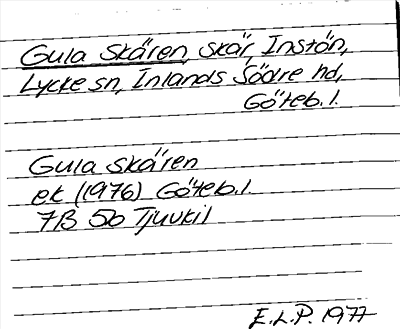 Gula Skären, skär, Instön,
Lycke sn, Inlands Södre hd,
Göteb. l.
Gula skären
ek (1976) Göteb. l
7B 5b Tjuvkil
E.L.P. 1977